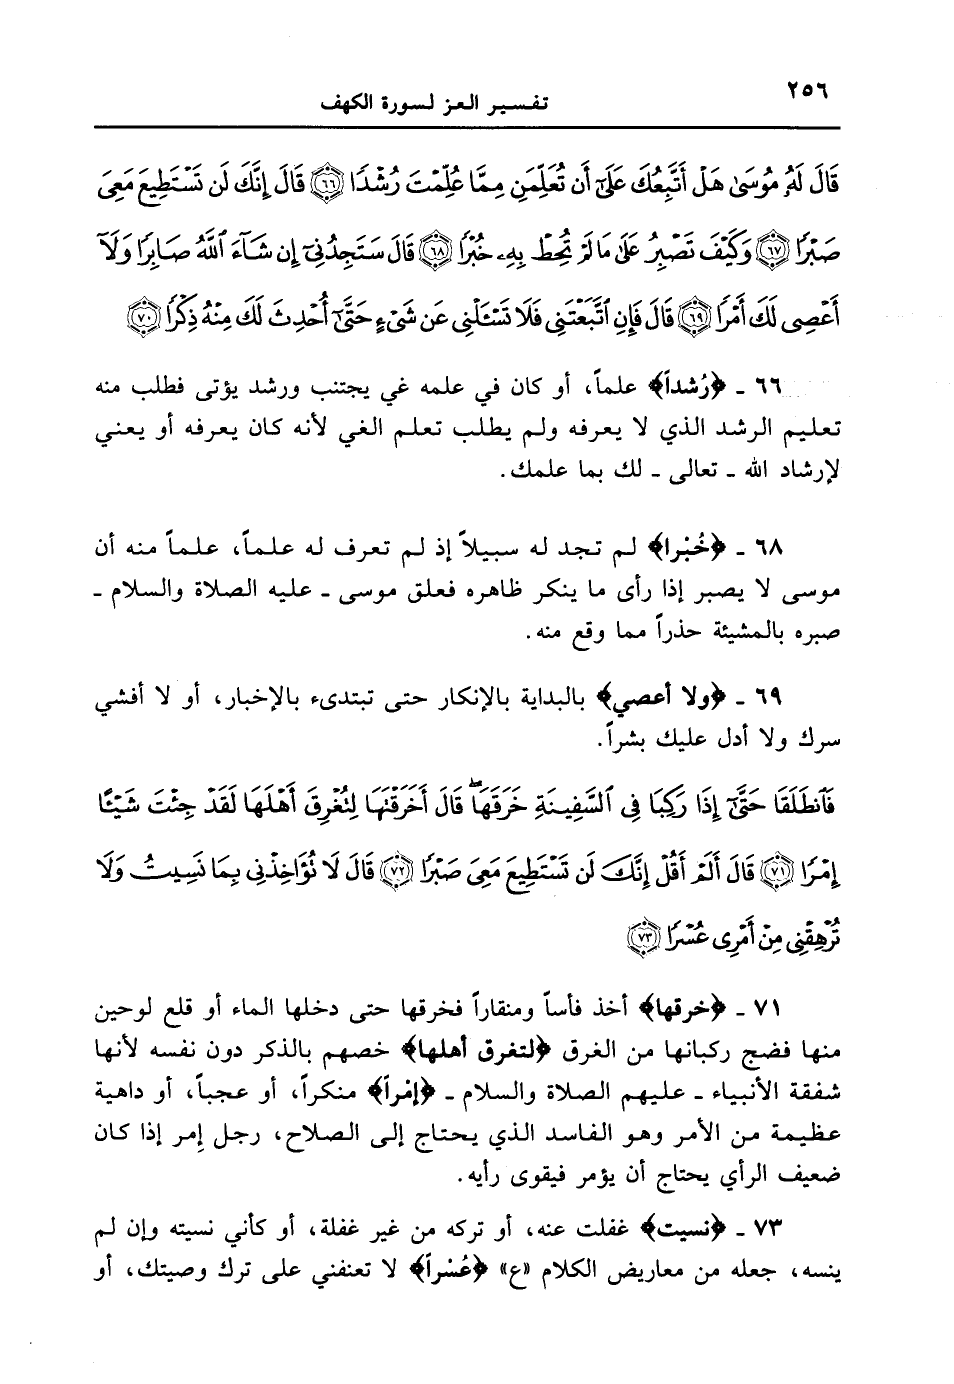 ٢٥٦
تفسير العز لسورة الكهف
قَالَ لَهُ مُوسَىٰ هَلْ أَتَّبِعُكَ عَلَىٰٓ أَن تُعَلِّمَنِ مِمَّا عُلِّمْتَ رُشْدًا ﴿٦٦﴾ قَالَ إِنَّكَ لَن تَسْتَطِيعَ مَعِىَ
صَبْرًا ﴿٦٧﴾ وَكَيْفَ تَصْبِرُ عَلَىٰ مَا لَمْ تُحِطْ بِهِۦ خُبْرًا ﴿٦٨﴾ قَالَ سَتَجِدُنِىٓ إِن شَآءَ ٱللَّهُ صَابِرًا وَلَآ
أَعْصِى لَكَ أَمْرًا ﴿٦٩﴾ قَالَ فَإِنِ ٱتَّبَعْتَنِى فَلَا تَسْـَٔلْنِى عَن شَىْءٍ حَتَّىٰٓ أُحْدِثَ لَكَ مِنْهُ ذِكْرًا ﴿٧٠﴾
٦٦ ـ ﴿رُشداً﴾ علماً، أو كان في علمه غي يجتنب ورشد يؤتى فطلب منه
تعليم الرشد الذي لا يعرفه ولم يطلب تعلم الغي لأنه كان يعرفه أو يعني
لإرشاد الله ـ تعالى ـ لك بما علمك.
٦٨ ـ ﴿خُبْرا﴾ لم تجد له سبيلاً إذ لم تعرف له علماً، علماً منه أن
موسى لا يصبر إذا رأى ما ينكر ظاهره فعلق موسى ـ عليه الصلاة والسلام ـ
صبره بالمشيئة حذراً مما وقع منه.
٦٩ ـ ﴿ولا أعصي﴾ بالبداية بالإنكار حتى تبتدىء بالإخبار، أو لا أفشي
سرك ولا أدل عليك بشراً.
فَٱنطَلَقَا حَتَّىٰٓ إِذَا رَكِبَا فِى ٱلسَّفِينَةِ خَرَقَهَا ۖ قَالَ أَخَرَقْتَهَا لِتُغْرِقَ أَهْلَهَا لَقَدْ جِئْتَ شَيْـًٔا
إِمْرًا ﴿٧١﴾ قَالَ أَلَمْ أَقُلْ إِنَّكَ لَن تَسْتَطِيعَ مَعِىَ صَبْرًا ﴿٧٢﴾ قَالَ لَا تُؤَاخِذْنِى بِمَا نَسِيتُ وَلَا
تُرْهِقْنِى مِنْ أَمْرِى عُسْرًا ﴿٧٣﴾
٧١ ـ ﴿خرقها﴾ أخذ فأساً ومنقاراً فخرقها حتى دخلها الماء أو قلع لوحين
منها فضج ركبانها من الغرق ﴿لتغرق أهلها﴾ خصهم بالذكر دون نفسه لأنها
شفقة الأنبياء ـ عليهم الصلاة والسلام ـ ﴿إمْراً﴾ منكراً، أو عجباً، أو داهية
عظيمة من الأمر وهو الفاسد الذي يحتاج إلى الصلاح، رجل إِمر إذا كان
ضعيف الرأي يحتاج أن يؤمر فيقوى رأيه.
٧٣ ـ ﴿نسيت﴾ غفلت عنه، أو تركه من غير غفلة، أو كأني نسيته وإن لم
ينسه، جعله من معاريض الكلام «ع» ﴿عُسْراً﴾ لا تعنفني على ترك وصيتك، أو